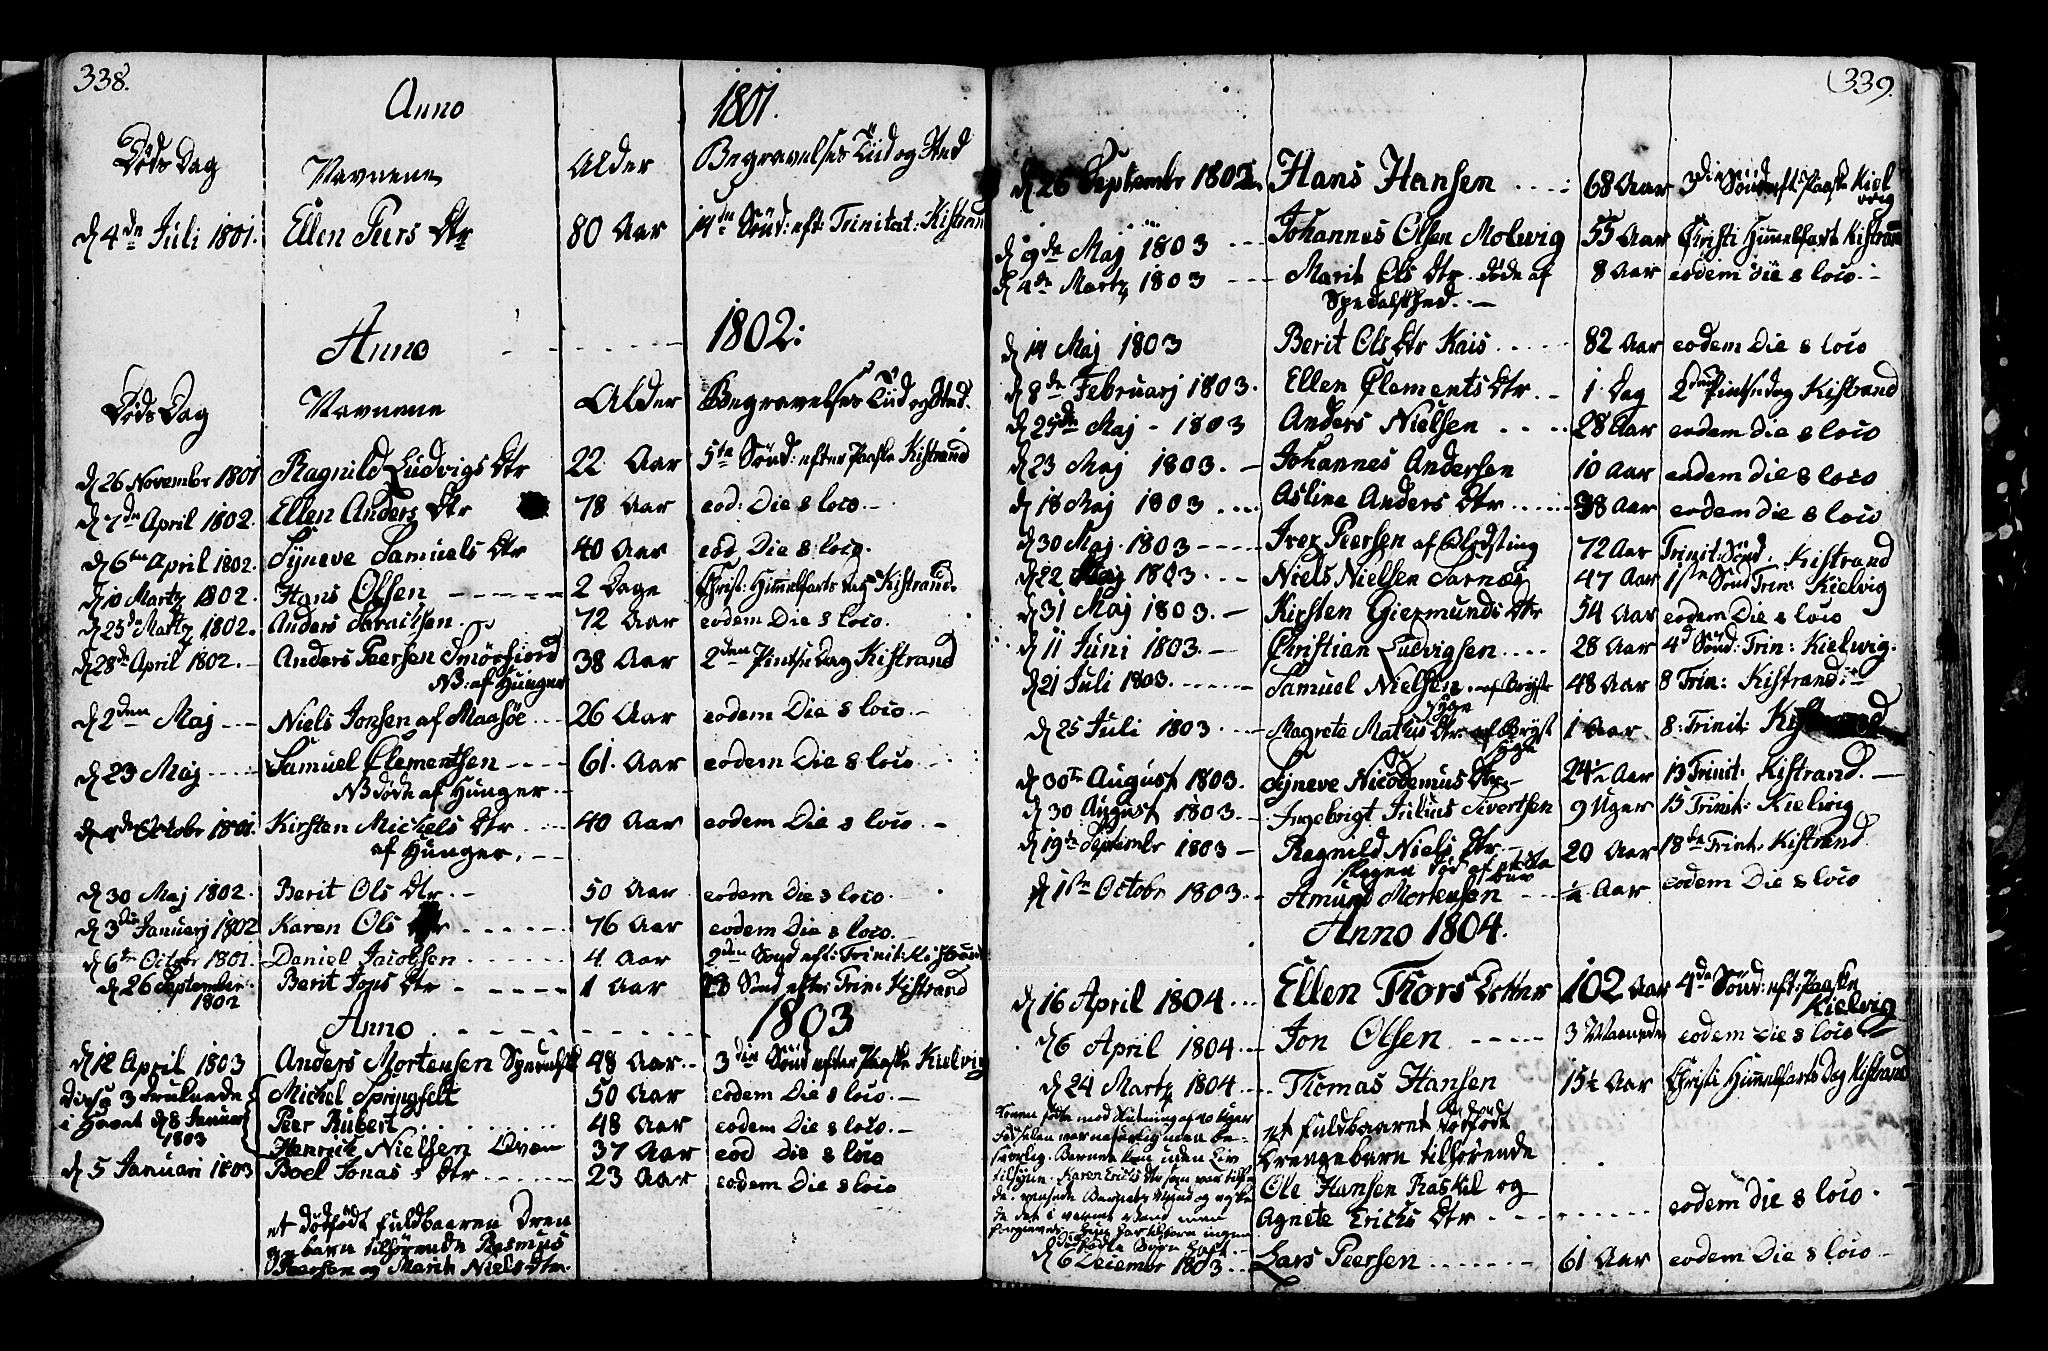 338.
Anno 1801.
Døds Dag Navnene Alder Begravelses Tiid og Sted
d 4de Juli 1801. Ellen Peers Dtr 80 Aar 14de Sönd: eft: Trinitat: Kistrand
Anno 1802:
Døds Dag Navnene Alder Begravelses Tiid og Sted.
d 26 November 1801 Ragnild Ludvigs Dtr 22 Aar 5te Sönd: efter Paaske Kistrand
d 7de April 1802. Ellen Anders Dtr 78 Aar eod: Die & loco.
d 6te April 1802. Syneve Samuels Dtr 40 Aar eod. Die & loco.
d 10 Martz 1802. Hans Olsen 2 Dage Christ: Himmelfarts Dag Kistrand.
d 25de Martz 1802. Anders 72 Aar eodem Die & loco.
d 28de April 1802. Anders Peersen Smörfiord 38 Aar 2den Pintse Dag Kistrand
NB: af Hunger
d 2den Maj Niels Jonsen af Maasöe 26 Aar eodem Die & loco.
d 23 Maj Samuel Clementsen 61. Aar eodem Die & loco
NB döde af Hunger
d 4de Octobr 1801. Kirsten Michels Dtr 40 Aar eodem Die & loco.
af Hunger.
d 30 Maj 1802. Berit Ols Dtr. 50 Aar eodem Die & loco.
d 3die Januarj 1802 Karen Ols Dtr 76 Aar eodem Die & loco.
d 6te Octobr 1801. Daniel Jacobsen 4 Aar 2den Sönd eft: Trinit: Kistrand
d 26 September 1802 Berit Jons Dtr 1 Aar Sönd efter Trin: Kistrand
Anno 1803
d 12 April 1803 Anders Mortensen Spedalsk 48 Aar 3die Sönd efter Paaske Kielvig
Disse 3 druknede Michel Springfelt 50 Aar eodem Die & loco.
i Havet d 8 Januar 1803 Peer Rubert 48 Aar eodem Die & loco.
Henrich Nielsen Qvæn 37 Aar eod Die & loco
d 5 Januari 1803 Boel Jonas Dtr 23 Aar eodem Die & loco
et dödfödt fuldbaaren Dren
ge barn tilhörende Rasmus
Peersen og Marit Niels Dtr.
339.
d 26 September 1802. Hans Hansen 68 Aar 3die Sönd eft: Paaske Kielvig
d 9de Maj 1803 Johannes Olsen Molvig 55 Aar Christi Himmelfart Kistrand
d 4de Martz 1803 Marit Ols Dtr. döde af 8 Aar eodem die & loco.
Spedalskhed.
d 14 Maj 1803 Berit Ols Dtr Kais 82 Aar eodem Die & loco
d 8de Februarj 1803. Ellen Clements Dtr. 1 Dag 2den Pintsedag Kistrand
d 25de Maj 1803 Anders Nielsen 28 Aar eodem Die & loco
d 23 Maj 1803. Johannes Andersen 10 Aar eodem Die & loco
d 18 Maj 1803 Asline Anders Dtr 38 Aar eodem Die & loco
d 30 Maj. 1803 Iver Peersen af 72 Aar Trinit: Sönd. Kistrand
d 22 Maj 1803. Niels Nielsen Sarnæs 47 Aar 1ste Sönd Trin: Kielvig
d 31 Maj 1803. Kirsten Giermunds Dtr 54 Aar eodem Die & loco
d 11 Juni 1803. Christian Ludvigsen 28 Aar 4d Sönd: Trin: Kielvig.
d 21 Juli 1803. Samuel Nielsen. af Bryst 48 Aar 8 Trin: Kistrand
syge
d 25 Juli 1803. Magrete Matis Dtr af Bryst 1 Aar 8: Trinit: Kistrand
syge
d 30te August 1803. Syneve Nicodemus Dtr 24½ Aar 13 Trinit: Kistrand.
d 30 August 1803. Ingebrigt Julius Sivertsen 9 Uger 15 Trinit: Kielvig
d 19de September 1803 Ragnild Niels Dtr 20 Aar 18de Trint. Kistrand.
d 1ste Octobr 1803. Amund Mortensen ½ Aar eodem Die & loco
Anno 1804.
d 16 April 1804. Ellen Thors Dotter 102 Aar 4de Sönd: eft: Paaske
Kielvig
d 6 April 1804. Jon Olsen 3 Maaneder eodem Die & loco
d 24 Martz 1804. Thomas Hansen 15½ Aar Christi Himmelfarts Dag Kistrand
et fuldbaaret dödfödt
Drengebarn tilhörende
Ole Hansen og
Agnete Erichs Dtr eodem Die & loco.
d 6 Decembr 1803. Lars Peersen 61 Aar eodem Die & loco